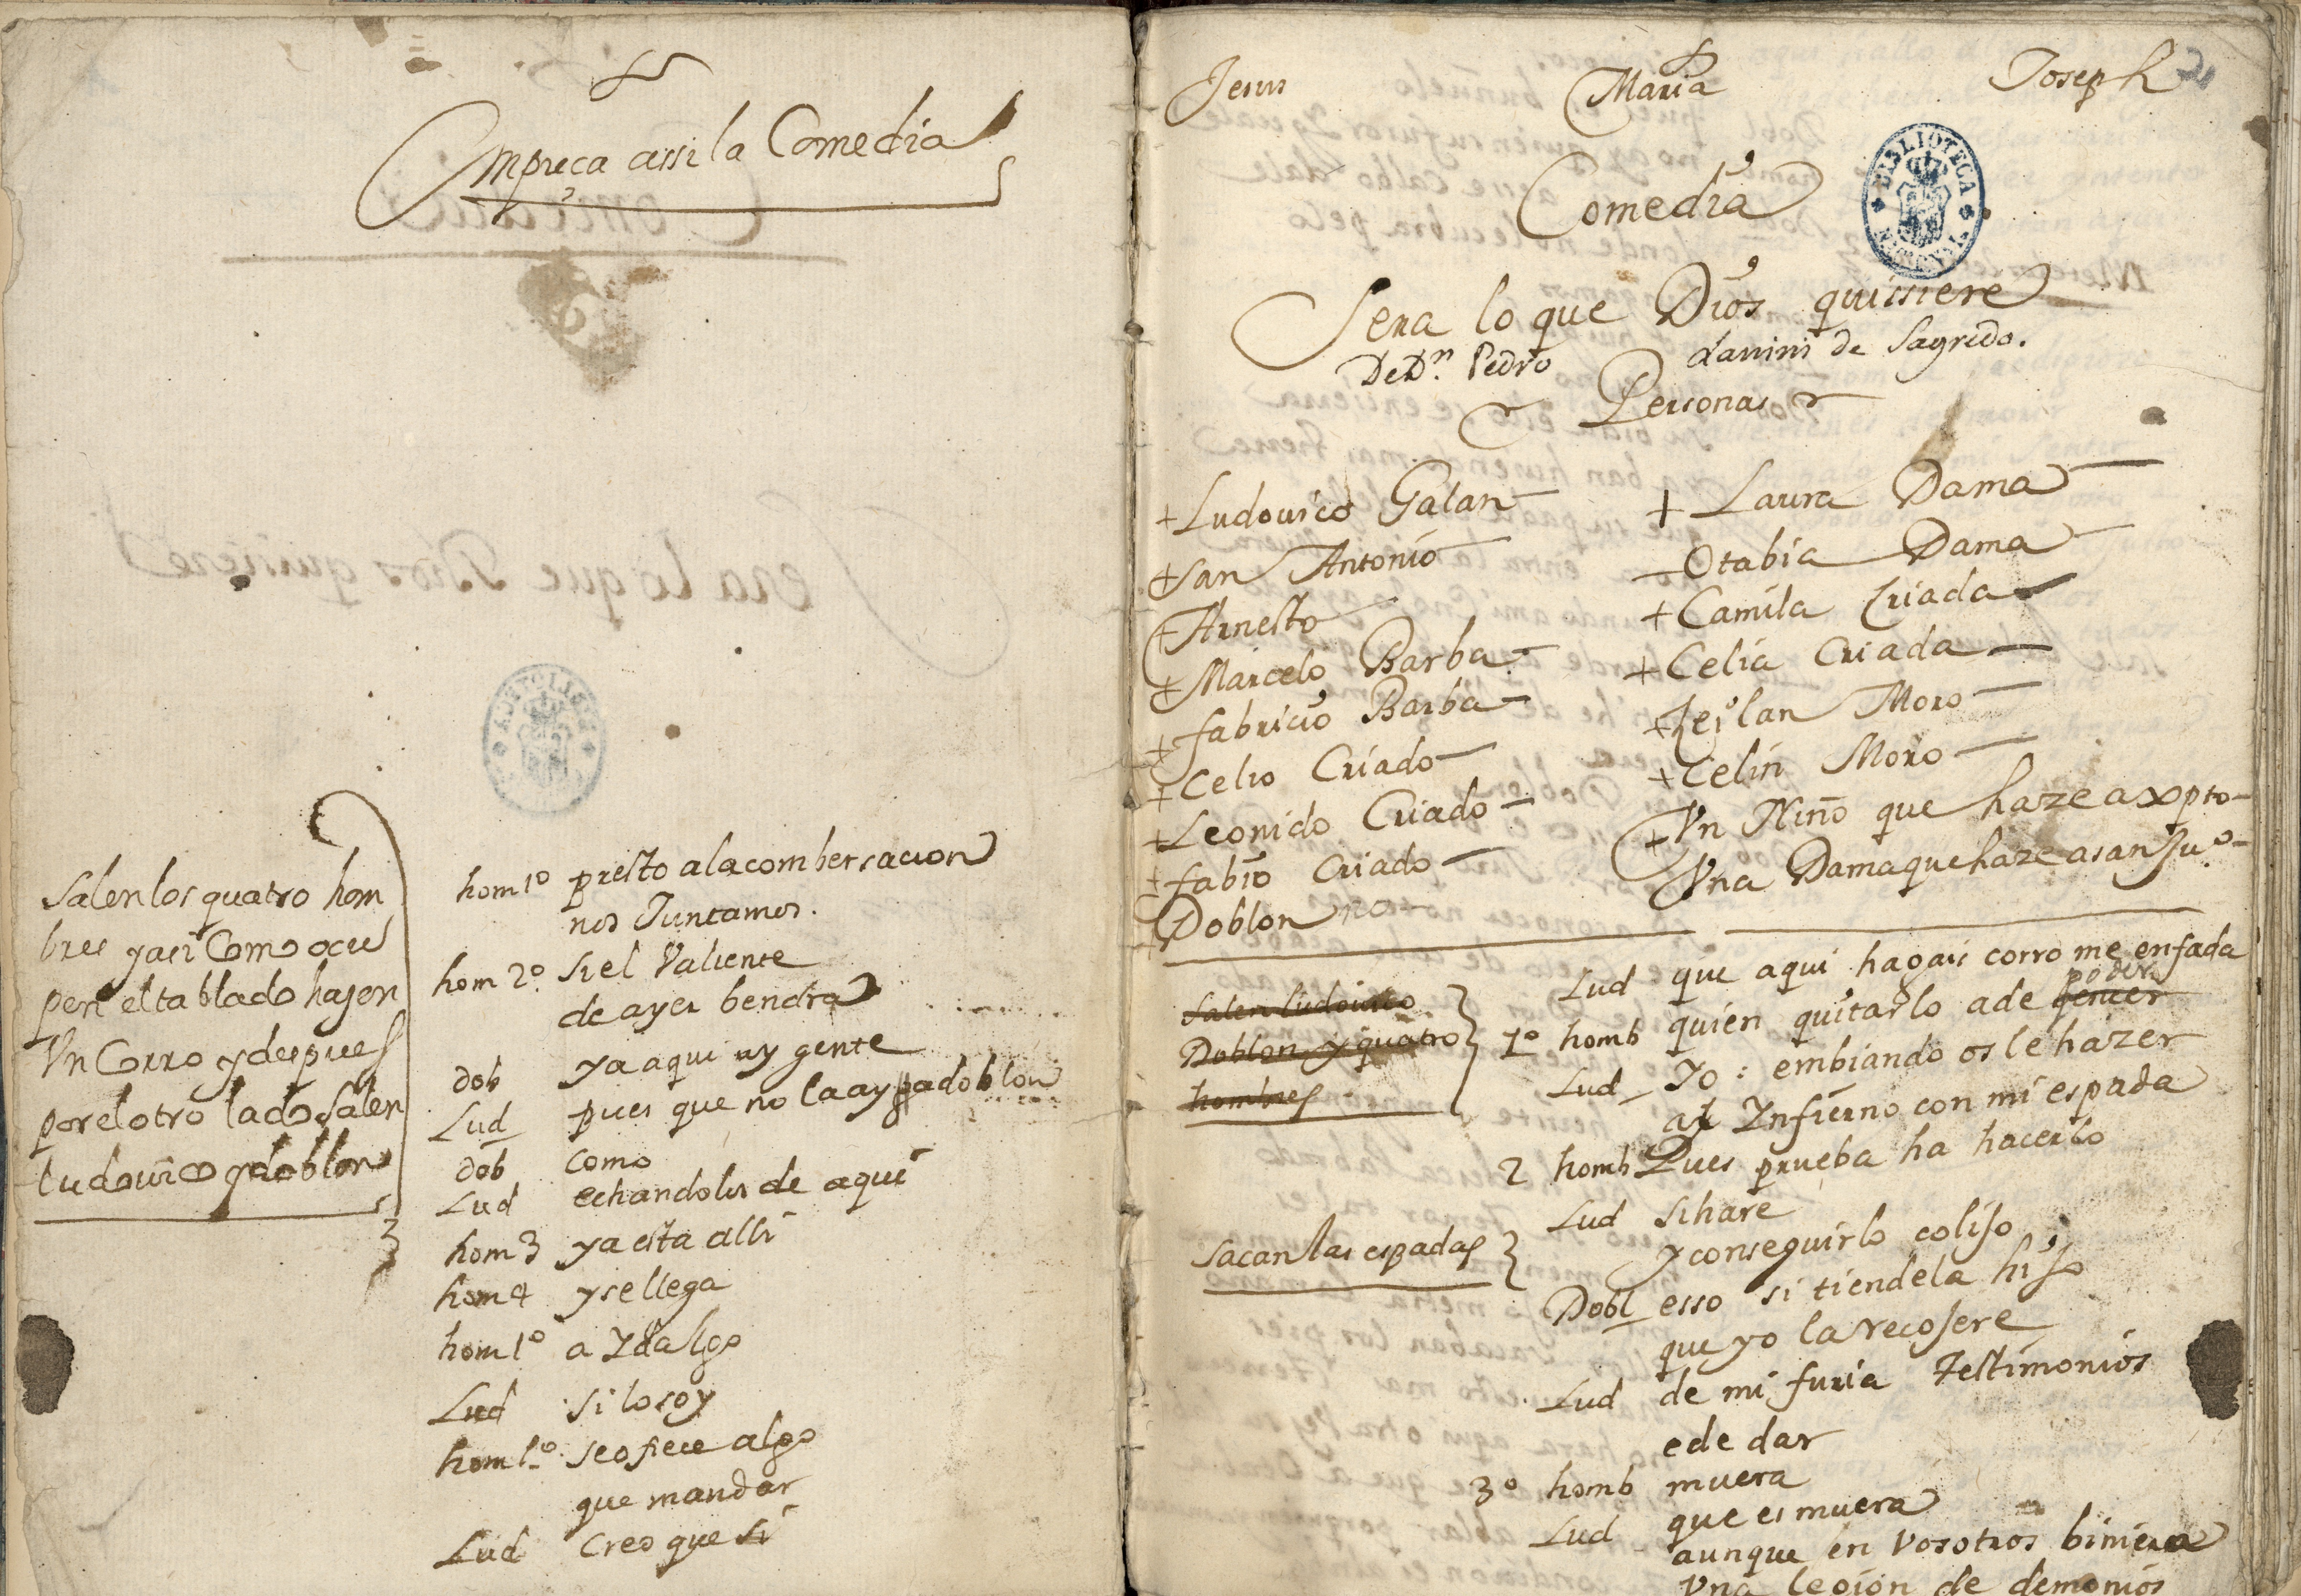 Empieça assi la Comedia
Salen los quatro hom
bres y asi Como ocu
pen el tablado hajen
Vn Corro y despues
por el otro lado salen
ludouico y doblon
hom 1º presto a la combersacion
nos Juntamos.
hom 2º si el Valiente
de ayer bendra
dob ya aqui ay gente
Lud pues que no la ay pa doblon
dob como
Lud echandolos de aqui
hom 3 ya esta alli
hom 4 y se llega
hom 1º a Ydalgo
Lud si lo soy
hom 1º se ofrece algo
que mandar
Lud Creo que si
Jesus Maria Joseph
2
Comedia
BIBLIOTECA
Sera lo que Dios quisiere
De Dn. Pedro Lanini de Sagredo.
Personas
+ Ludouico Galan
+ San Antonio
+ Arnesto
+ Marcelo Barba
+ fabricio Barba
+ Celio Criado
+ Leonido Criado
+ fabio Criado
Doblon no
+ Laura Dama
Otabia Dama
+ Camila Criada
+ Celia Criada
+ Zeilan Moro
+ Celin Moro
+ Vn Niño que haze a xpto
Vna Dama que haze a san Juº
Salen ludouico
Doblon y quatro
hombres
Lud que aqui hagais corro me enfada
1º homb quien quitarlo a de poder
Lud Yo: embiando os le hazer
al Infierno con mi espada
2 homb Pues prueba ha hacerlo
Lud si hare
y conseguirlo colijo
Sacan las espadas
Dobl esso si tiendela hijo
que yo la recojere
Lud de mi furia testimonios
e de dar
3º homb muera
Lud que es muera
aunque en vosotros biniera
Vna legion de demonios